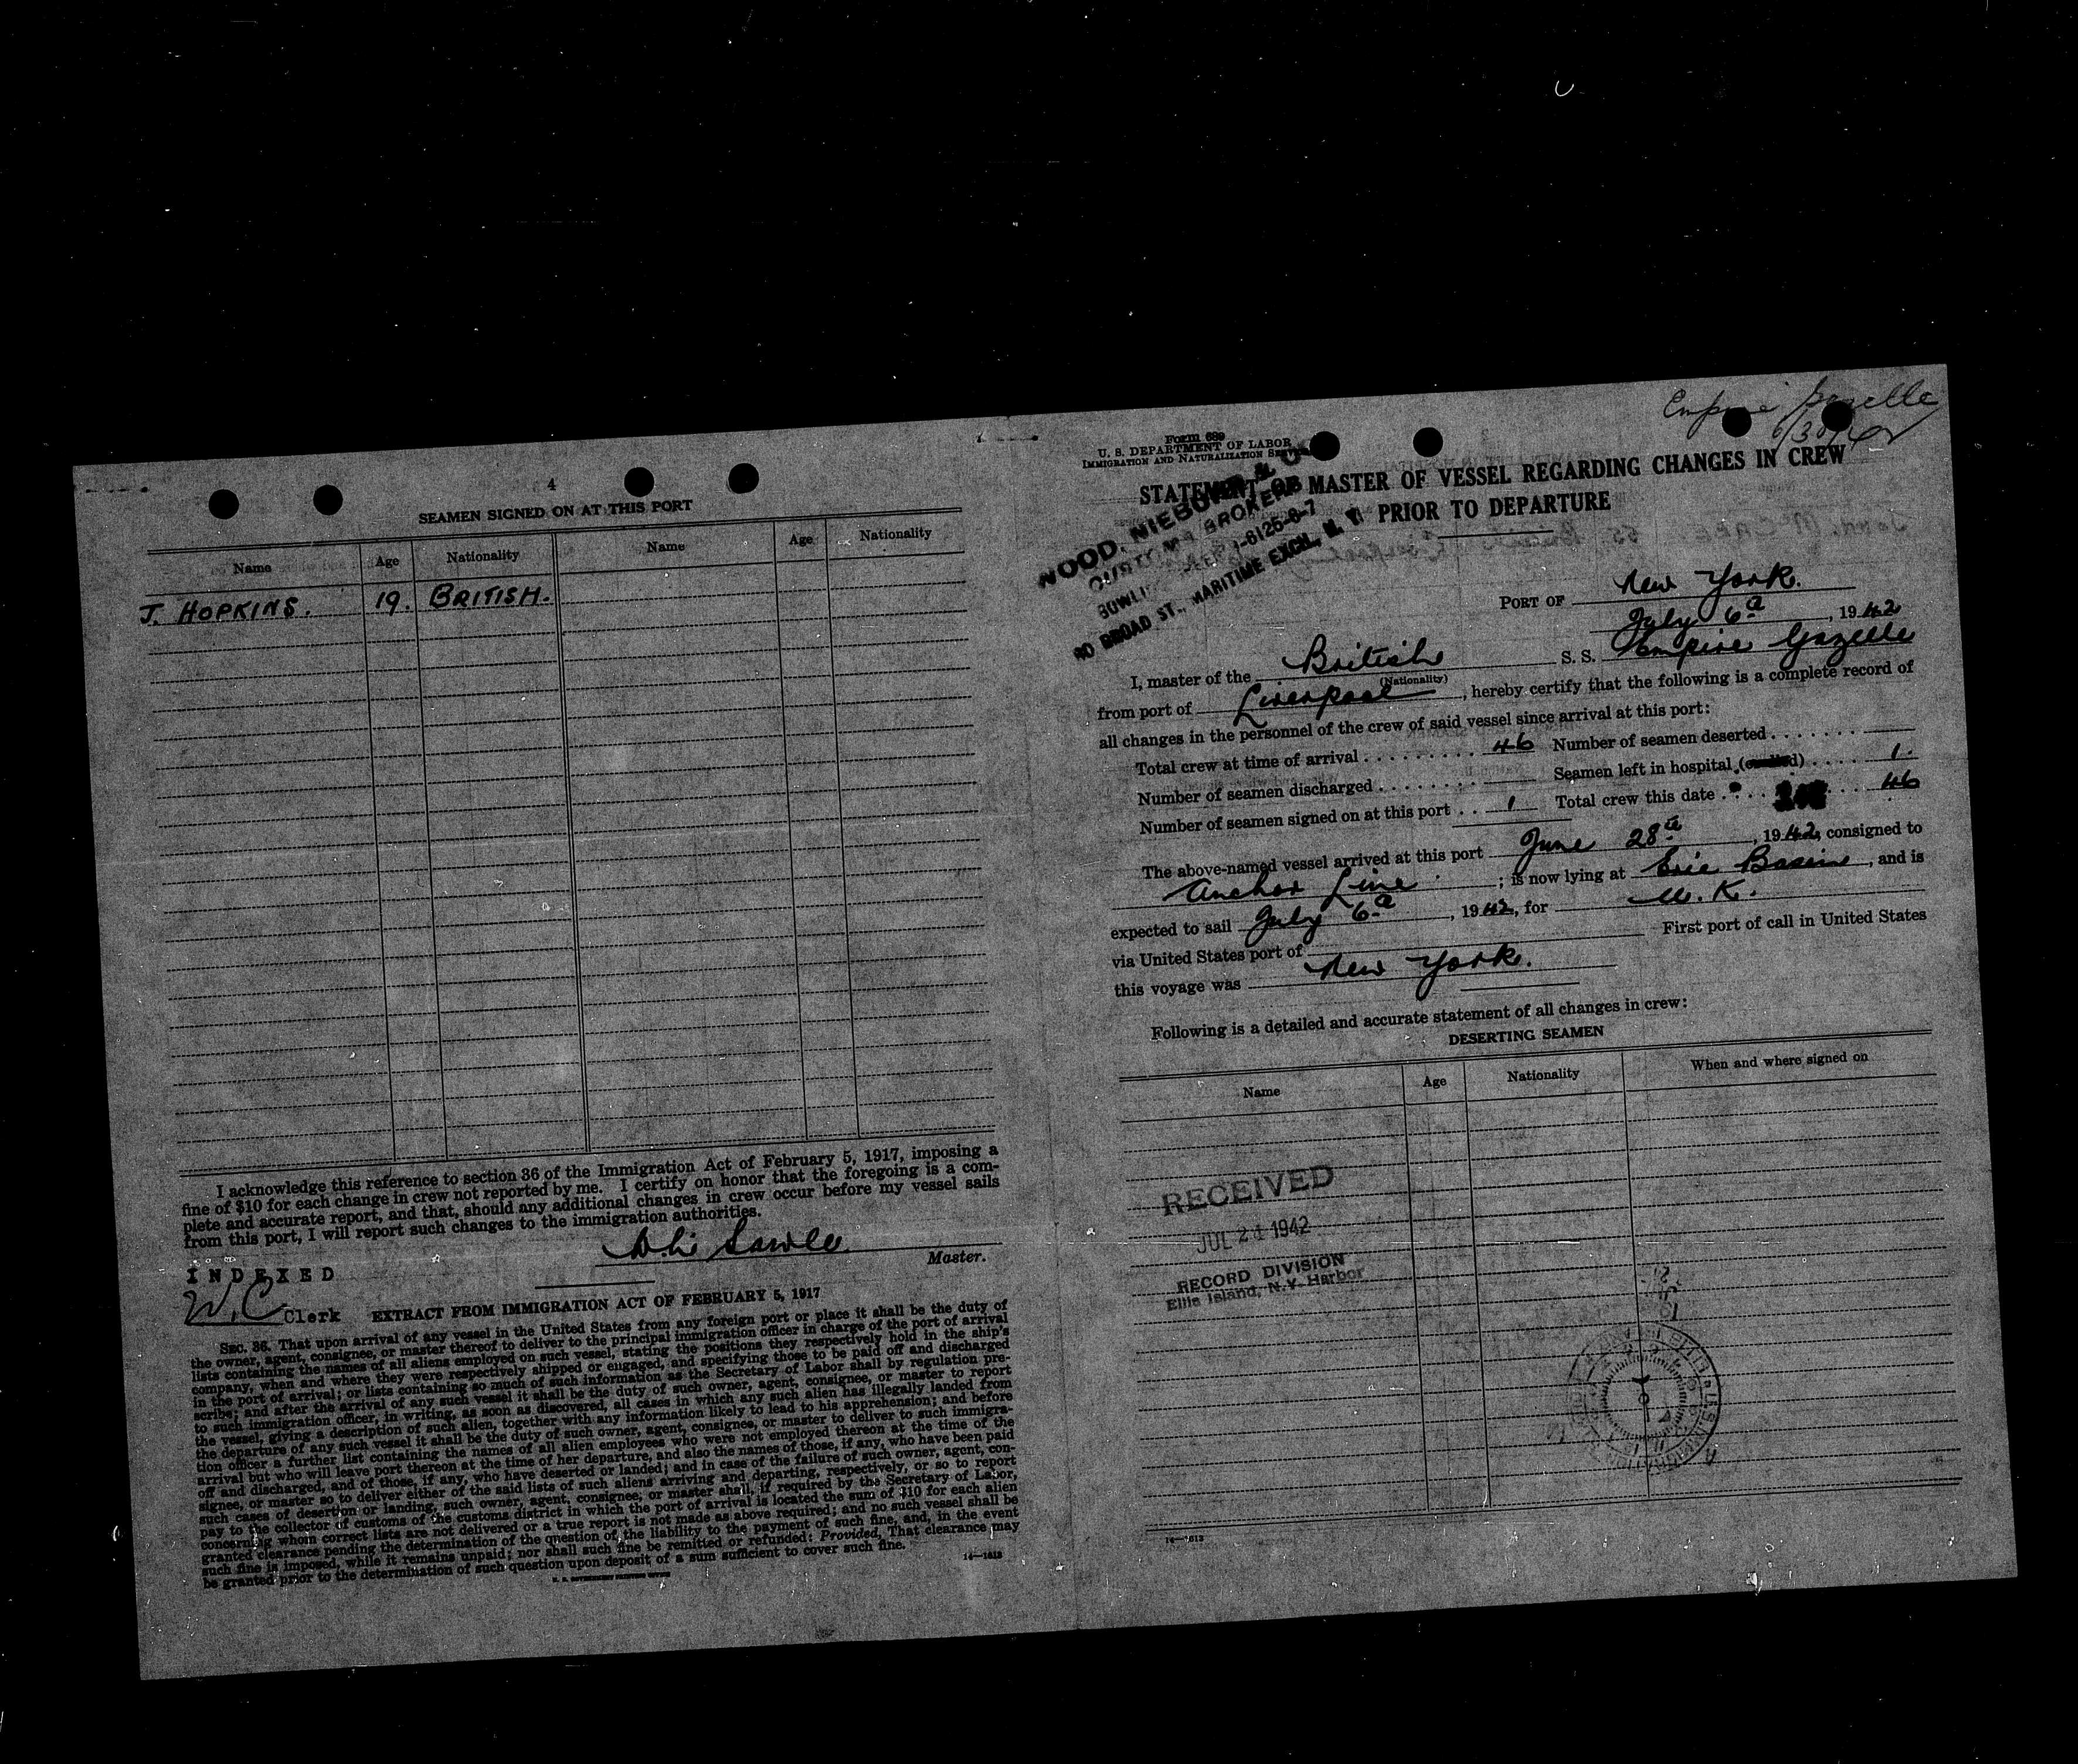 4
SEAMEN SIGNED ON AT THIS PORT
Name Age Nationality Name Age Nationality
J. HOPKINS. 19. BRITISH.
I acknowledge this reference to section 36 of the Immigration Act of February 5, 1917, imposing a
fine of $10 for each change in crew not reported by me. I certify on honor that the foregoing is a com-
plete and accurate report, and that, should any additional changes in crew occur before my vessel sails
from this port, I will report such changes to the immigration authorities.
Master.
INDEXED
W.C. Clerk
EXTRACT FROM IMMIGRATION ACT OF FEBRUARY 5, 1917
SEC. 36. That upon arrival of any vessel in the United States from any foreign port or place it shall be the duty of
the owner, agent, consignee, or master thereof to deliver to the principal immigration officer in charge of the port of arrival
lists containing the names of all aliens employed on such vessel, stating the positions they respectively hold in the ship's
company, when and where they were respectively shipped or engaged, and specifying those to be paid off and discharged
in the port of arrival; or lists containing so much of such information as the Secretary of Labor shall by regulation pre-
scribe; and after the arrival of any such vessel it shall be the duty of such owner, agent, consignee, or master to report
to such immigration officer, in writing, as soon as discovered, all cases in which any such alien has illegally landed from
the vessel, giving a description of such alien, together with any information likely to lead to his apprehension; and before
the departure of any such vessel it shall be the duty of such owner, agent, consignee, or master to deliver to such immigra-
tion officer a further list containing the names of all alien employees who were not employed thereon at the time of the
arrival but who will leave port thereon at the time of her departure, and also the names of those, if any, who have been paid
off and discharged, and of those, if any, who have deserted or landed; and in case of the failure of such owner, agent, con-
signee, or master so to deliver either of the said lists of such aliens arriving and departing, respectively, or so to report
such cases of desertion or landing, such owner, agent, consignee, or master shall, if required by the Secretary of Labor,
pay to the collector of customs of the customs district in which the port of arrival is located the sum of $10 for each alien
concerning whom correct lists are not delivered or a true report is not made as above required; and no such vessel shall be
granted clearance pending the determination of the question of the liability to the payment of such fine, and, in the event
such fine is imposed, while it remains unpaid; nor shall such fine be remitted or refunded: Provided, That clearance may
be granted prior to the determination of such question upon deposit of a sum sufficient to cover such fine.
U. S. GOVERNMENT PRINTING OFFICE
14—1613
Empire Gazelle
6/30/42
Form 689
U. S. DEPARTMENT OF LABOR
IMMIGRATION AND NATURALIZATION SERVICE
STATEMENT OF MASTER OF VESSEL REGARDING CHANGES IN CREW
PRIOR TO DEPARTURE
WOOD, NIEBUHR & CO.
CUSTOMS BROKERS
80 BROAD ST., MARITIME EXCH., N. Y.
PORT OF New York.
July 6th, 1942
I, master of the British S. S. Empire Gazelle
(Nationality)
from port of Liverpool, hereby certify that the following is a complete record of
all changes in the personnel of the crew of said vessel since arrival at this port:
Total crew at time of arrival . . . . . . . . 46 Number of seamen deserted . . . . . . .
Number of seamen discharged . . . . . . . Seamen left in hospital . . . . . 1.
Number of seamen signed on at this port . . 1 Total crew this date . . . 46
The above-named vessel arrived at this port June 28th, 1942, consigned to
Anchor Line; is now lying at Erie Basin, and is
expected to sail July 6th, 1942, for U. K.
via United States port of First port of call in United States
this voyage was New York.
Following is a detailed and accurate statement of all changes in crew:
DESERTING SEAMEN
Name Age Nationality When and where signed on
RECEIVED
JUL 21 1942
RECORD DIVISION
Ellis Island, N.Y. Harbor
14—1613